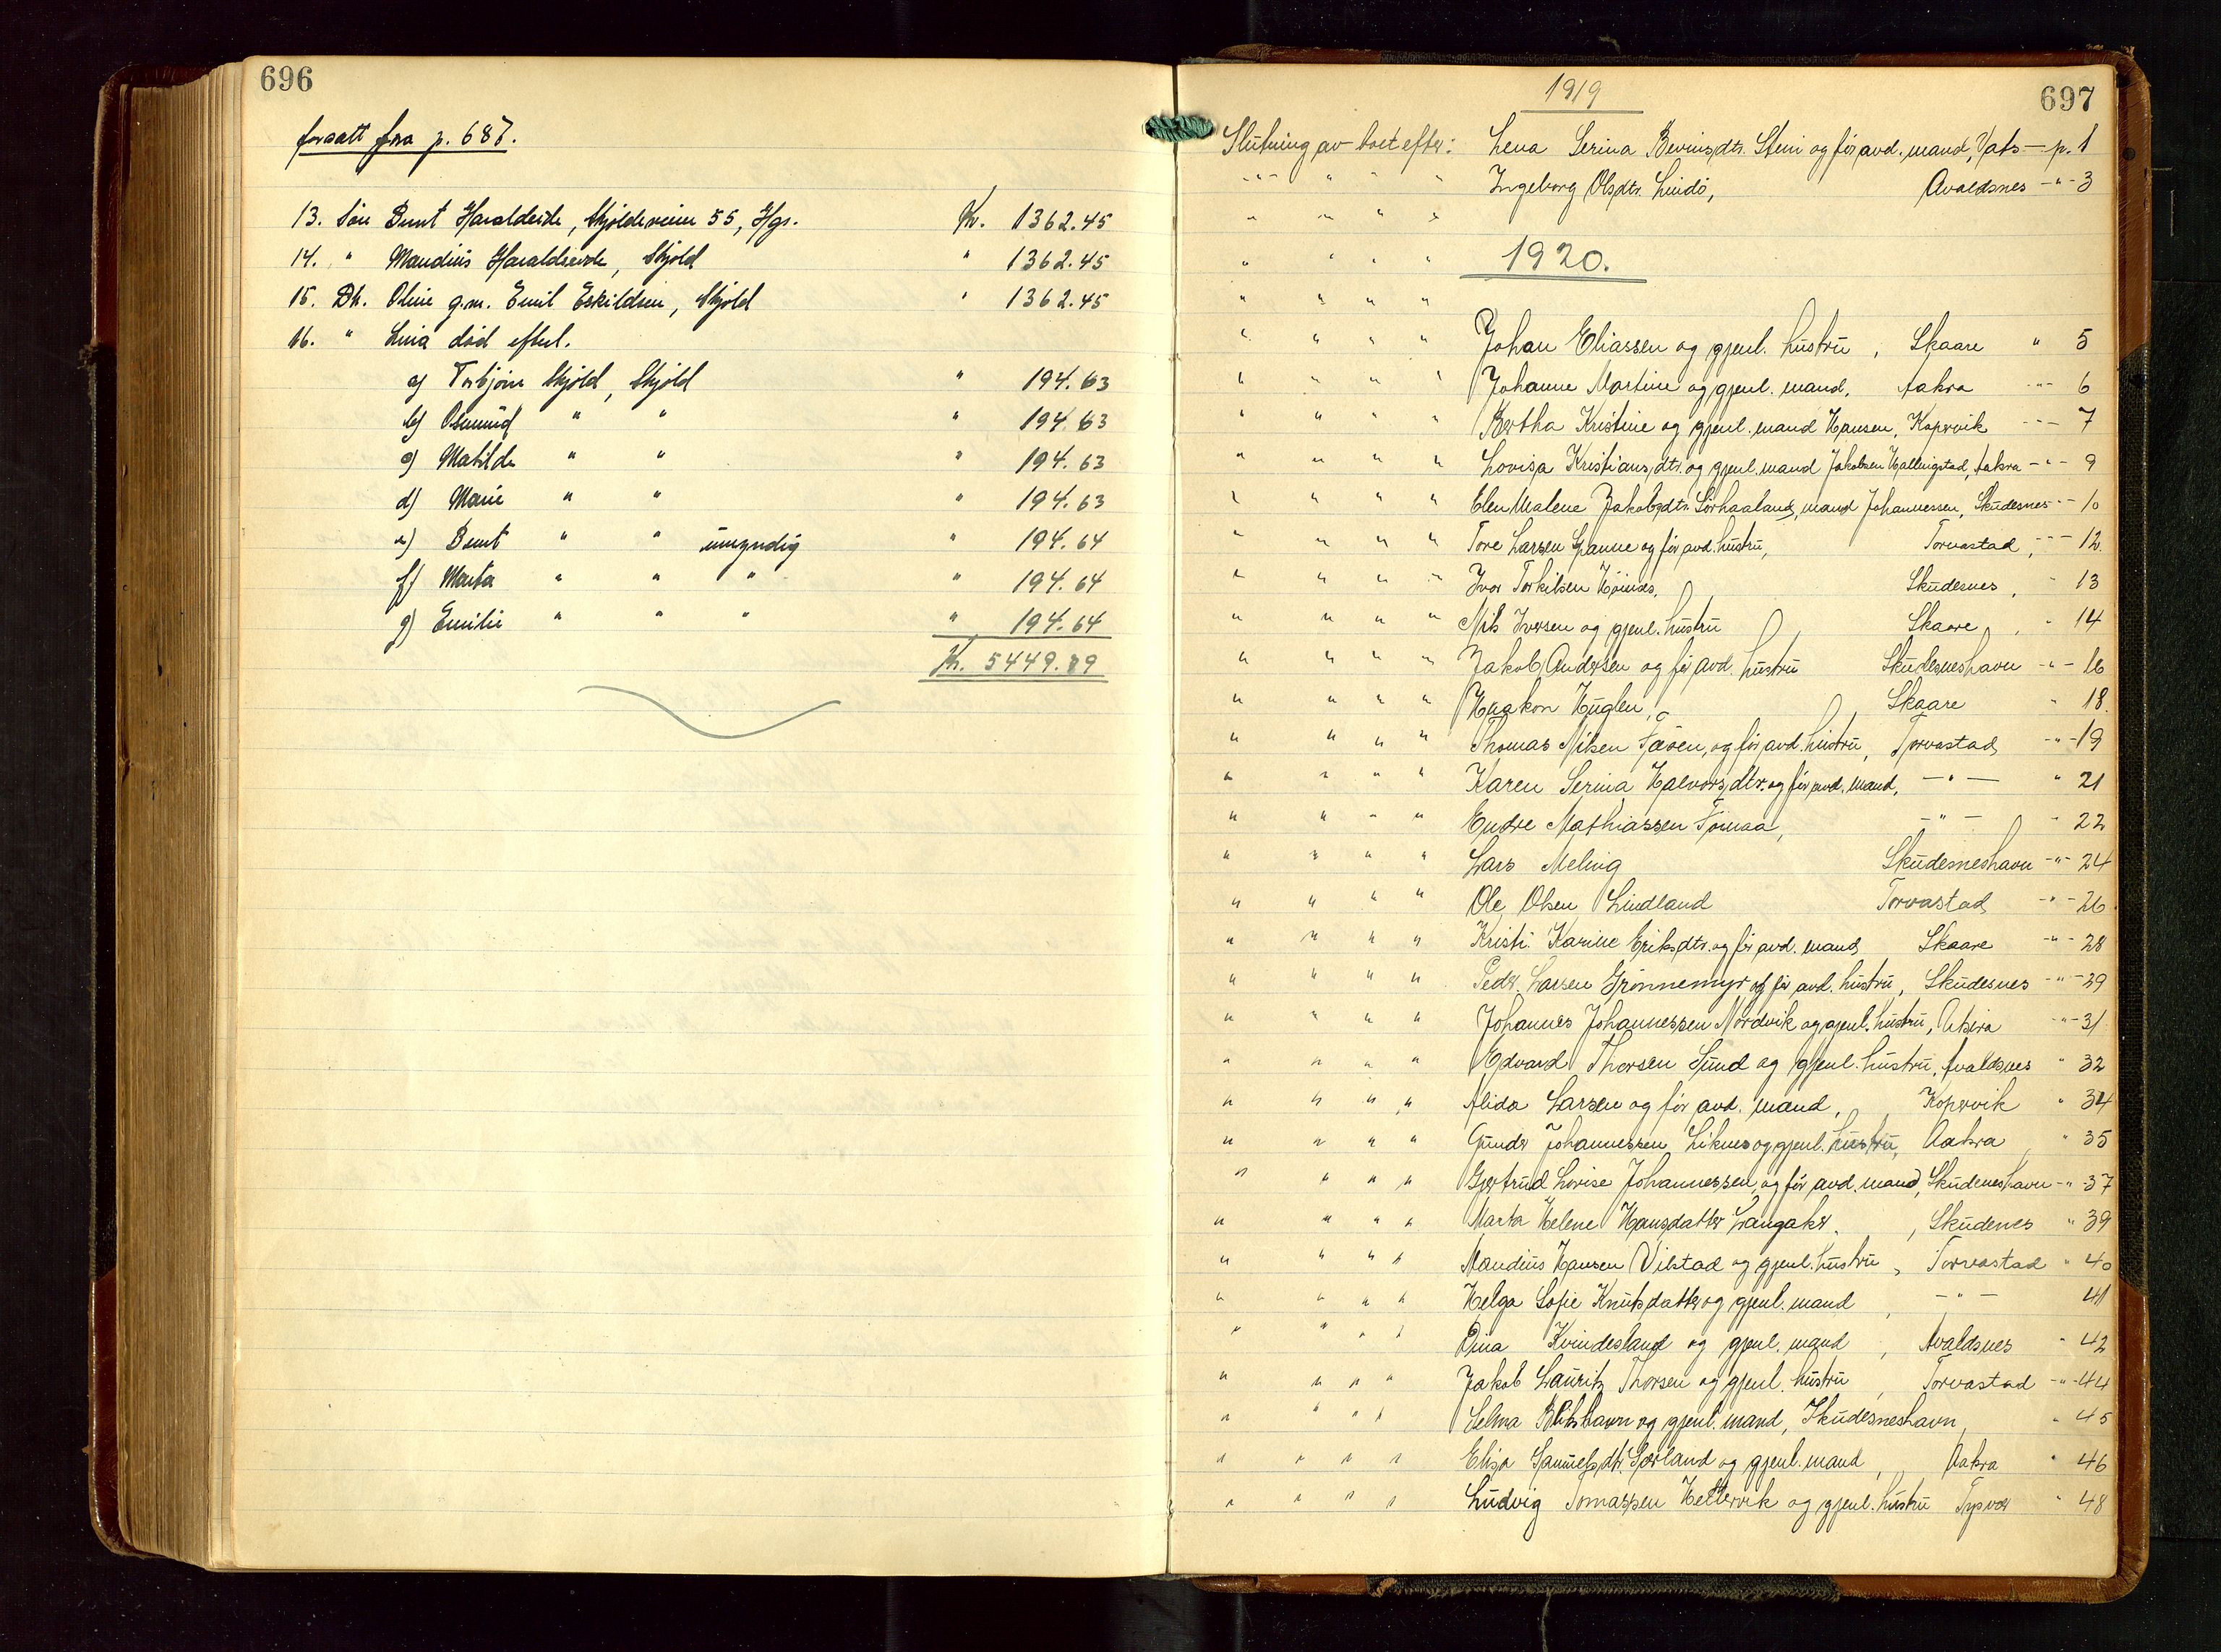 696
forsatt fra p. 687.
13. Søn Bernt Haraldseide, Skjoldeveien 55, Hgs. Kr. 1362.45
14. " Mandius Haraldseide, Skjold " 1362.45
15. Dtr. Oline g.m. Emil Eskildsen, Skjold " 1362.45
16. " Lina død efterl.
a) Torbjørn Skjold, Skjold " 194.63
b) Osmund " " " 194.63
c) Matilde " " " 194.63
d) Marie " " " 194.63
e) Bernt " " umyndig " 194.64
f) Marta " " " " 194.64
g) Emilie " " " " 194.64
Kr. 5449.79
697
1919
Slutning av boet efter: Lena Serina Bevinsdtr. Stein og før avd. mand, Vats — p. 1
" " " " Ingeborg Olsdtr. Lindö, Avaldsnes - " - 3
" " " "
" " " " 1920.
" " " "
" " " " Johan Eliassen og gjenl. hustru, Skaare " 5
" " " " Johanne Martine og gjenl. mand, Aakra - " - 6
" " " " Bertha Kristine og gjenl. mand Hansen, Kopervik - " - 7
" " " " Lovisa Kristiansdtr. og gjenl. mand Jakobsen Hallingstad, Aakra - " - 9
" " " " Elen Malene Jakobsdtr. Sörhaaland, mand Johannessen, Skudesnes - " - 10
" " " " Tore Larsen Spanne og før avd. hustru, Torvastad, - " - 12.
" " " " Ivar Torkilsen Höines, Skudesnes, " 13
" " " " Nils Iversen og gjenl. hustru, Skaare, " 14
" " " " Jakob Andersen og før avd. hustru Skudesneshavn - " - 16
" " " " Haakon Huglen, Skaare " 18.
" " " " Thomas Nilsen Fæøen, og før avd. hustru, Torvastad - " - 19
" " " " Karen Serina Halvorsdtr. og før avd. mand, — " — " 21
" " " " Endre Mathiassen Fosnaa, - " - " 22
" " " " Lars Meling Skudesneshavn - " - 24
" " " " Ole Olsen Lindland Torvastad - " - 26
" " " " Kristi Karine Eriksdtr. og før avd. mand, Skaare - " - 28
" " " " Peder Larsen Grönnemyr og før avd. hustru, Skudesnes - " - 29
" " " " Johannes Johannessen Nordvik og gjenl. hustru, Utsira - " - 31
" " " " Edvard Thorsen Sund og gjenl. hustru, Avaldsnes " 32
" " " " Alida Larsen og før avd. mand, Kopervik " 34
" " " " Gunder Johannessen Liknes og gjenl. hustru, Aakra " 35
" " " " Gjertrud Lovise Johannessen, og før avd. mand, Skudeneshavn - " - 37
" " " " Marta Helene Hansdatter Langaker, Skudenes " 39
" " " " Mandius Hansen Vikstad og gjenl. hustru, Torvastad " 40
" " " " Helga Sofie Knutsdatter og gjenl. mand, - " - 41
" " " " Dina Kvindesland og gjenl. mand, Avaldsnes " 42
" " " " Jakob Lauritz Thorsen og gjenl. hustru, Torvastad - " - 44
" " " " Selma og gjenl. mand, Skudesneshavn, " 45
" " " " Elisa Samuelsdtr. Sørland og gjenl. mand, Aakra " 46
" " " " Ludvig Tomassen Hettervik og gjenl. hustru Tysvær " 48